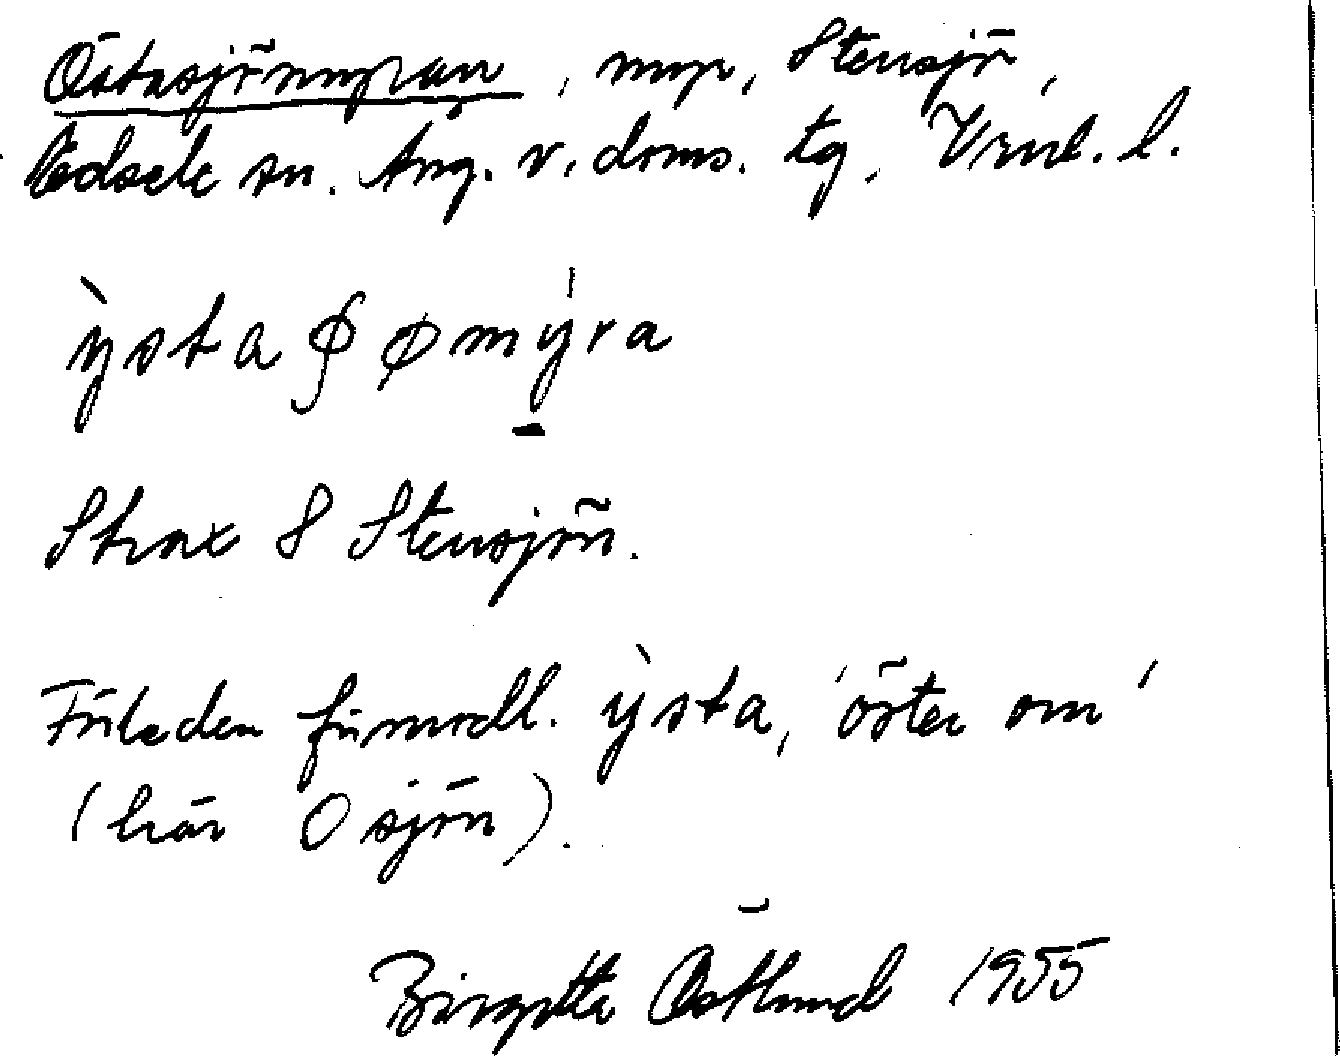 Östasjömyran, myr, Stensjö,
Edsele sn. Ång. v. doms. tg. Vrnl. l.
y̋sta ʃømy̋ra
Strax S Stensjön.
Förleden förmodl. ỳsta, 'öster om'
(här O sjön).
Birgitta Östlund 1955